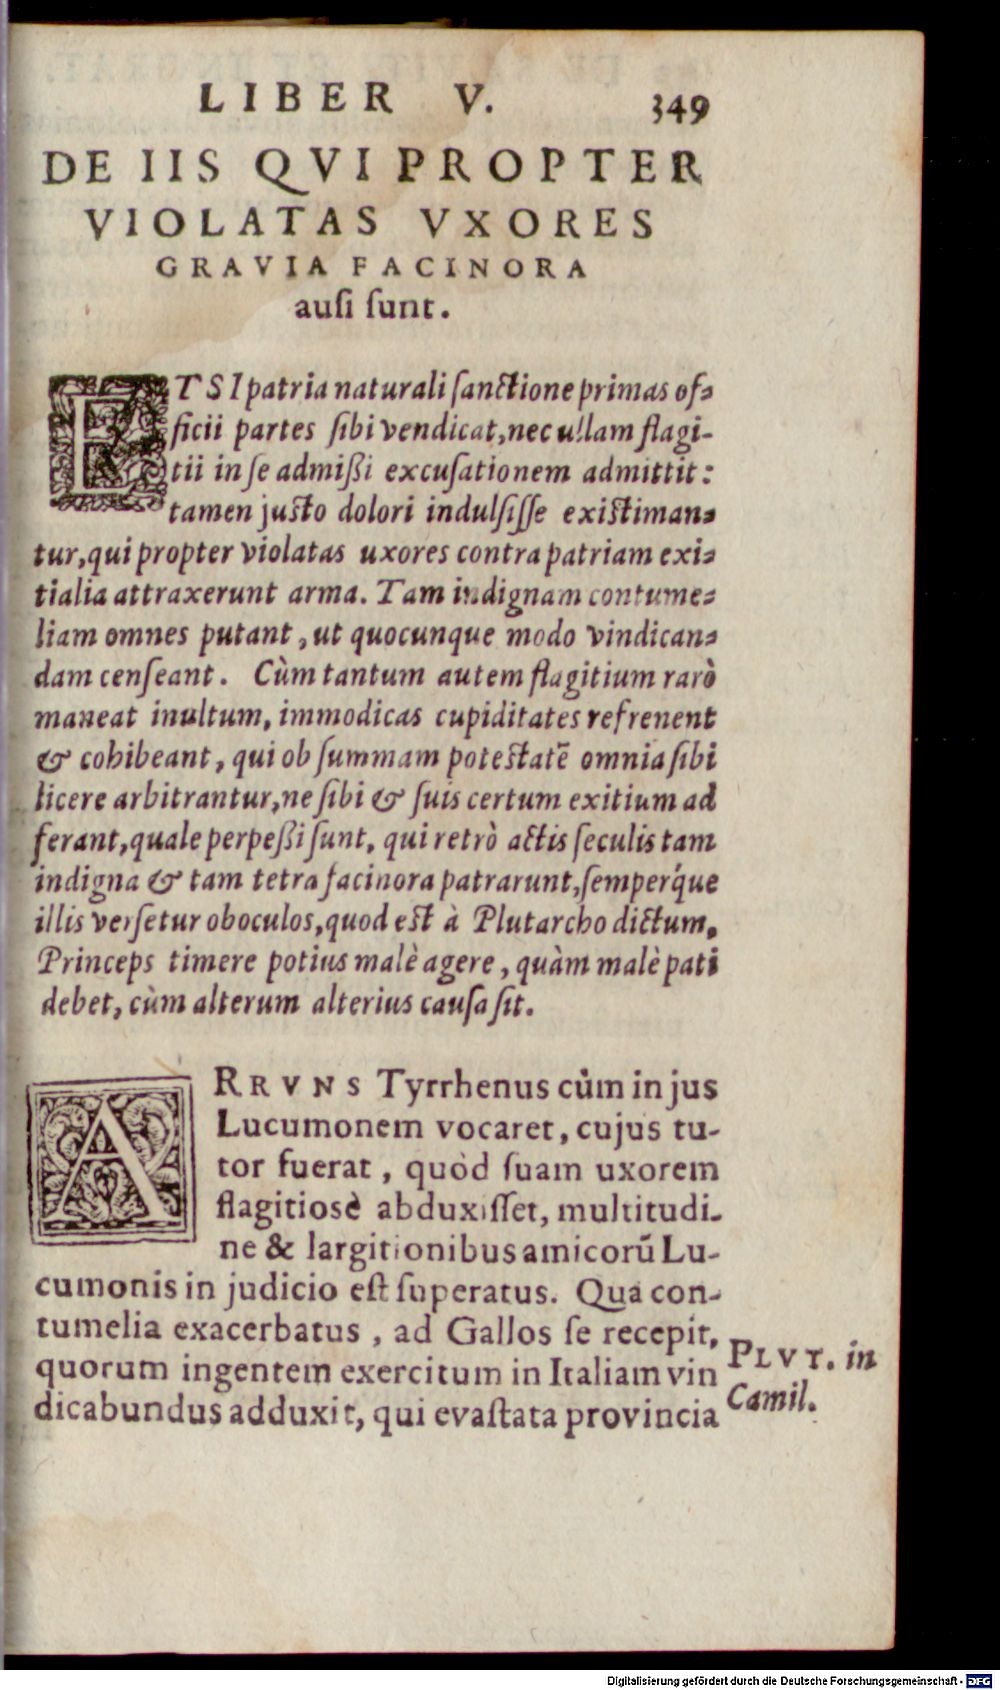 LIBER V. 349
DE IIS QVI PROPTER
VIOLATAS VXORES
GRAVIA FACINORA
auſi ſunt.
ETSI patria naturali ſanctione primas of-
ficii partes ſibi vendicat, nec ullam flagi-
tii in ſe admißi excuſationem admittit:
tamen juſto dolori indulſiſſe exiſtiman-
tur, qui propter violatas uxores contra patriam exi-
tialia attraxerunt arma. Tam indignam contume-
liam omnes putant, ut quocunque modo vindican-
dam cenſeant. Cùm tantum autem flagitium rarò
maneat inultum, immodicas cupiditates refrenent
& cohibeant, qui ob ſummam poteſtatē omnia ſibi
licere arbitrantur, ne ſibi & ſuis certum exitium ad
ferant, quale perpeßi ſunt, qui retrò actis ſeculis tam
indigna & tam tetra facinora patrarunt, ſemperq́ue
illis verſetur ob oculos, quod eſt à Plutarcho dictum,
Princeps timere potius malè agere, quàm malè pati
debet, cùm alterum alterius cauſa ſit.
ARRVNS Tyrrhenus cùm in jus
Lucumonem vocaret, cujus tu-
tor fuerat, quòd ſuam uxorem
flagitiosè abduxiſſet, multitudi-
ne & largitionibus amicorũ Lu-
cumonis in judicio eſt ſuperatus. Qua con-
tumelia exacerbatus, ad Gallos ſe recepit,
quorum ingentem exercitum in Italiam vin
dicabundus adduxit, qui evaſtata provincia
PLVT. in
Camil.
Digitalisierung gefördert durch die Deutsche Forschungsgemeinschaft - DFG